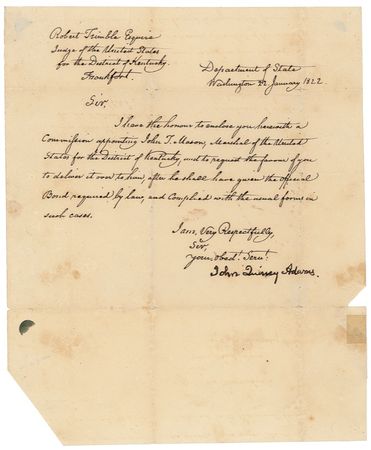 Robert Trimble Esquire
Judge of the United States
for the District of Kentucky.
Frankfort.
Department of State
Washington January 1822
Sir.
I have the honour to enclose you herewith a
Commission appointing John T. Mason, Marshal of the United
States for the District of Kentucky, and to request the favour of you
to deliver it over to him, after he shall have given the official
Bond required by law, and Complied with the usual forms in
such cases.
I am, Very Respectfully,
Sir,
your obedt. Servt.
John Quincy Adams.